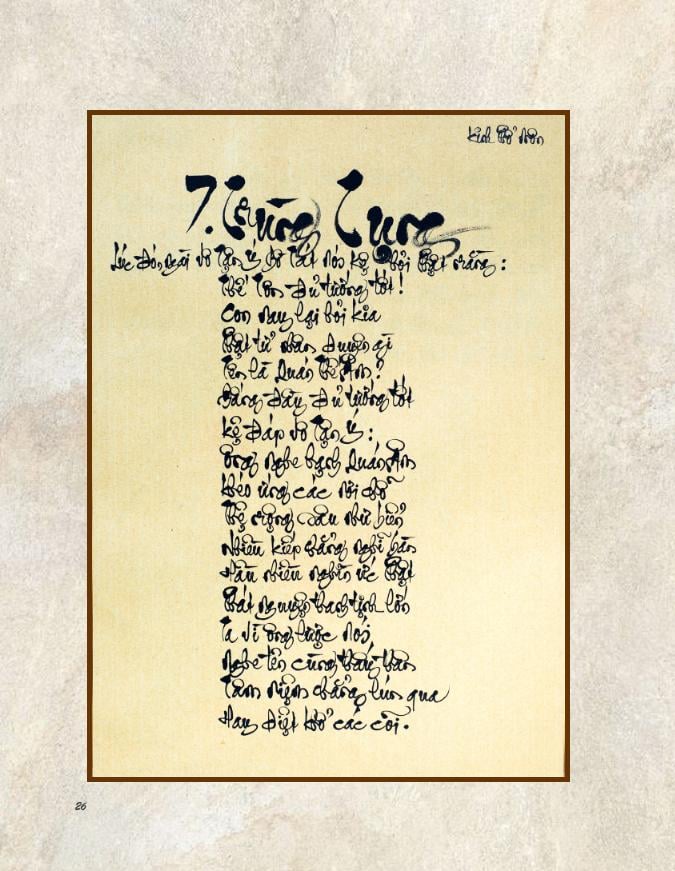 Kinh Phổ Môn
7. Trùng Tụng
Lúc đó, ngài Vô Tận Ý dùng kệ hỏi Phật rằng:
Thế Tôn đủ tướng tốt!
Con nay lại hỏi kia
Phật tử nhân duyên gì
Tên là Quán Thế Âm?
Đấng đầy đủ tướng tốt
Kệ đáp Vô Tận Ý:
Ông nghe hạnh Quán Âm
Khéo ứng các nơi chỗ
Thệ rộng sâu như biển
Nhiều kiếp chẳng nghĩ bàn
Hầu nhiều nghìn ức Phật
Phát nguyện thanh tịnh lớn
Ta vì ông lược nói
Nghe tên cùng thấy thân
Tâm niệm chẳng luống qua
Hay diệt khổ các cõi.
26